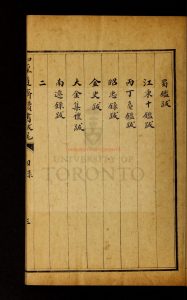 蜀鑑跋
江東十鑑跋
丙丁龜鑑跋
昭忠錄跋
金史跋
大金集禮跋
南遷錄跋
二
目錄
UNIVERSITY OF
TORONTO